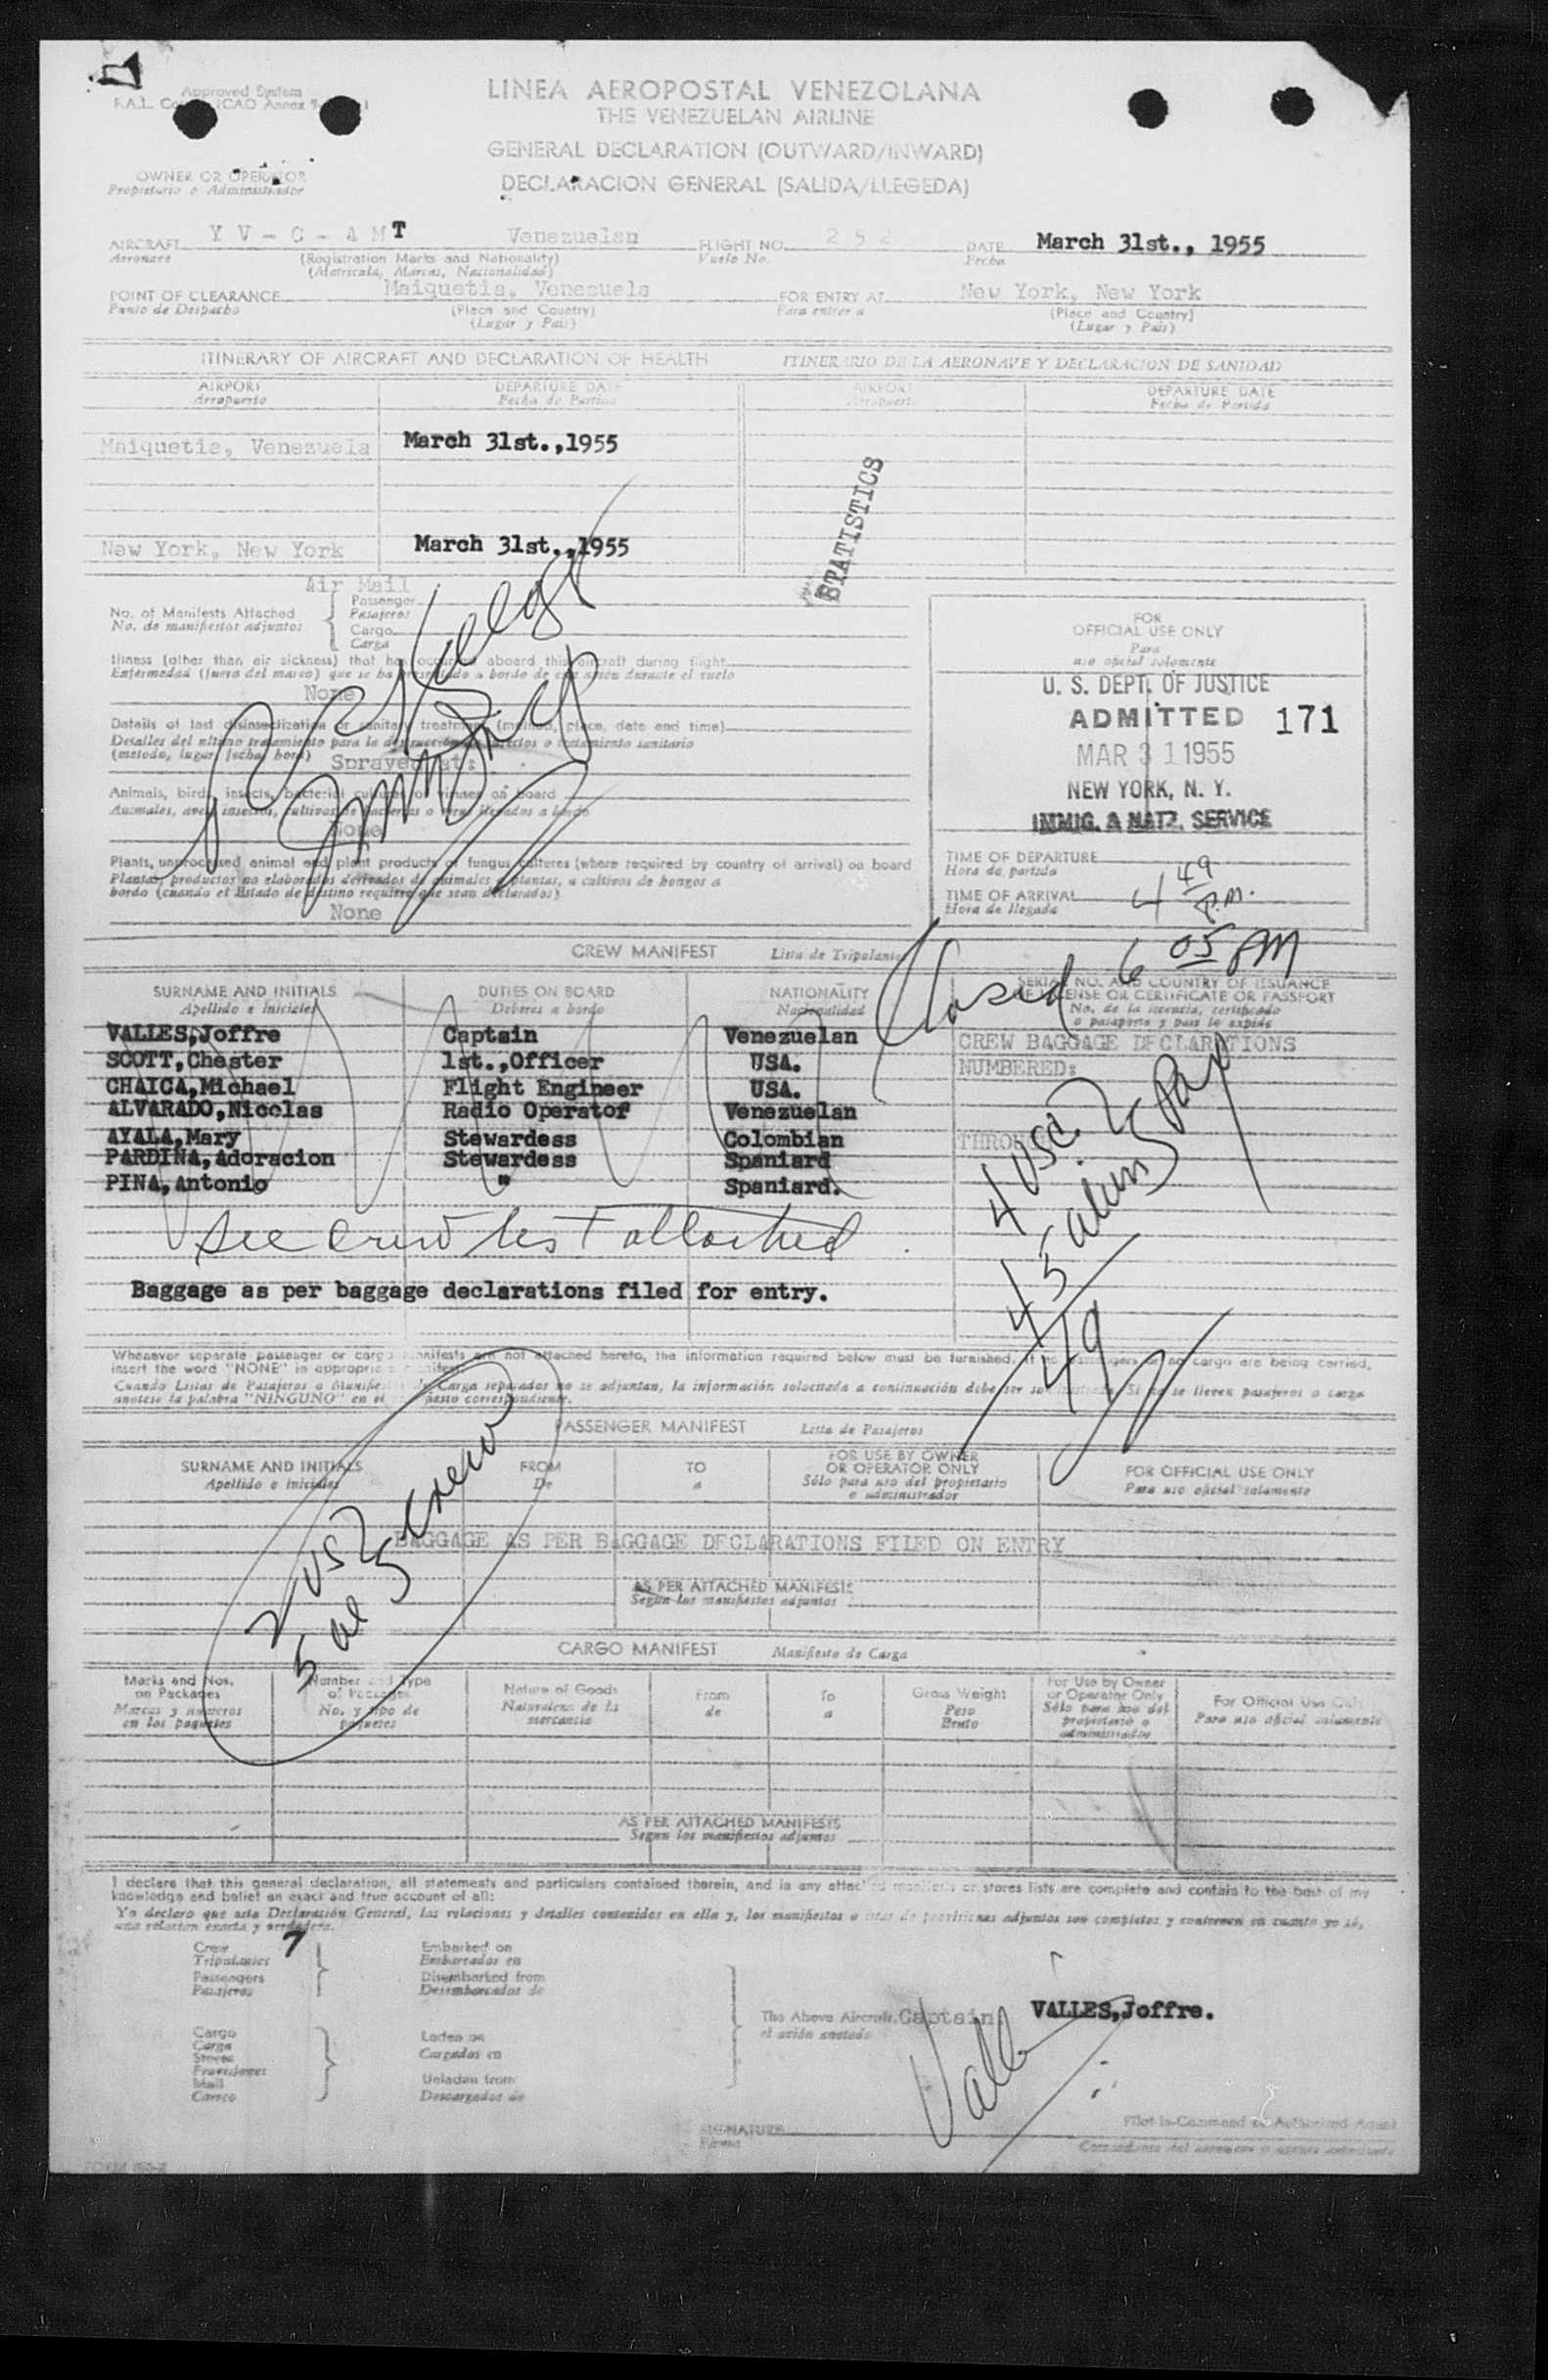 Approved System
LINEA AEROPOSTAL VENEZOLANA
THE VENEZUELAN AIRLINE
GENERAL DECLARATION (OUTWARD/INWARD)
DECLARACION GENERAL (SALIDA/LLEGEDA)
OWNER OR OPERATOR
Propietario o Administrador
AIRCRAFT YV-C-AMT Venezuelan FLIGHT NO. 252 DATE March 31st., 1955
Aeronave (Registration Marks and Nationality) Vuelo No. Fecha
(Matricula, Marcas, Nacionalidad)
POINT OF CLEARANCE Maiquetia, Venezuela FOR ENTRY AT New York, New York
Punto de Despacho (Place and Country) Para entrar a (Place and Country)
(Lugar y Pais) (Lugar y Pais)
ITINERARY OF AIRCRAFT AND DECLARATION OF HEALTH ITINERARIO DE LA AERONAVE Y DECLARACION DE SANIDAD
AIRPORT DEPARTURE DATE AIRPORT DEPARTURE DATE
Aeropuerto Fecha de Partida Aeropuerto Fecha de Partida
Maiquetia, Venezuela March 31st.,1955
STATISTICS
New York, New York March 31st.,1955
Air Mail
No. of Manifests Attached Passenger
No. de manifiestos adjuntos Pasajeros
Cargo
Carga
Illness (other than air sickness) that has occurred aboard this aircraft during flight
None
Details of last disinsectization or sanitary treatment (method, place, date and time)
(metodo, lugar fecha hora) Sprayed at:
Animals, birds, insects, bacterial cultures or viruses on board
None
Plants, unprocessed animal and plant products or fungus cultures (where required by country of arrival) on board
Plantas, productos no elaborados derivados de animales o plantas, o cultivos de hongos a
bordo (cuando el Estado de destino requiere que sean declarados)
None
FOR
OFFICIAL USE ONLY
Para
uso oficial solamente
U. S. DEPT. OF JUSTICE
ADMITTED 171
MAR 31 1955
NEW YORK, N. Y.
IMMIG. & NATZ. SERVICE
TIME OF DEPARTURE
Hora de partida
TIME OF ARRIVAL 4 49 P.M.
Hora de llegada
Closed 6 05 PM
CREW MANIFEST Lista de Tripulantes
SURNAME AND INITIALS DUTIES ON BOARD NATIONALITY SERIAL NO. AND COUNTRY OF ISSUANCE
Apellido e iniciales Deberes a bordo Nacionalidad OF LICENSE OR CERTIFICATE OR PASSPORT
No. de la licencia, certificado
o pasaporte y pais lo expide
VALLES,Joffre Captain Venezuelan CREW BAGGAGE DECLARATIONS
SCOTT,Chester 1st.,Officer USA. NUMBERED:
CHAICA,Michael Flight Engineer USA.
ALVARADO,Nicolas Radio Operator Venezuelan
AYALA,Mary Stewardess Colombian
PARDINA,Adoracion Stewardess Spaniard
PINA,Antonio " Spaniard.
4 USC
45 aliens
49
See crew list attached
Baggage as per baggage declarations filed for entry.
Whenever separate passenger or cargo manifests are not attached hereto, the information required below must be furnished. If no passengers or no cargo are being carried,
insert the word "NONE" in appropriate manifest.
PASSENGER MANIFEST Lista de Pasajeros
SURNAME AND INITIALS FROM TO FOR USE BY OWNER FOR OFFICIAL USE ONLY
OR OPERATOR ONLY
Apellido e iniciales De a Sólo para uso del propietario Para uso oficial solamente
o administrador
2 US
5 al crew
BAGGAGE AS PER BAGGAGE DECLARATIONS FILED ON ENTRY
AS PER ATTACHED MANIFESTS
Segun los manifiestos adjuntos
CARGO MANIFEST Manifiesto de Carga
Marks and Nos. Number and Type Nature of Goods From To Gross Weight For Use by Owner For Official Use Only
on Packages of Packages Naturaleza de la de a Peso or Operator Only Para uso oficial solamente
Marcas y numeros No. y tipo de mercancia Bruto Sólo para uso del
en los paquetes paquetes propietario o
administrador
AS PER ATTACHED MANIFESTS
Segun los manifiestos adjuntos
I declare that this general declaration, all statements and particulars contained therein, and in any attached manifests or stores lists are complete and contain to the best of my
knowledge and belief an exact and true account of all:
Crew 7 Embarked on
Tripulantes Embarcados en
Passengers Disembarked from
Pasajeros Desembarcados de
The Above Aircraft. Captain VALLES,Joffre.
el avión anotado
Cargo Laden on
Carga Cargados en
Stores
Provisiones Unladen from
Mail
Correo Descargados de
SIGNATURE
Firma
Pilot-in-Command or Authorized Agent